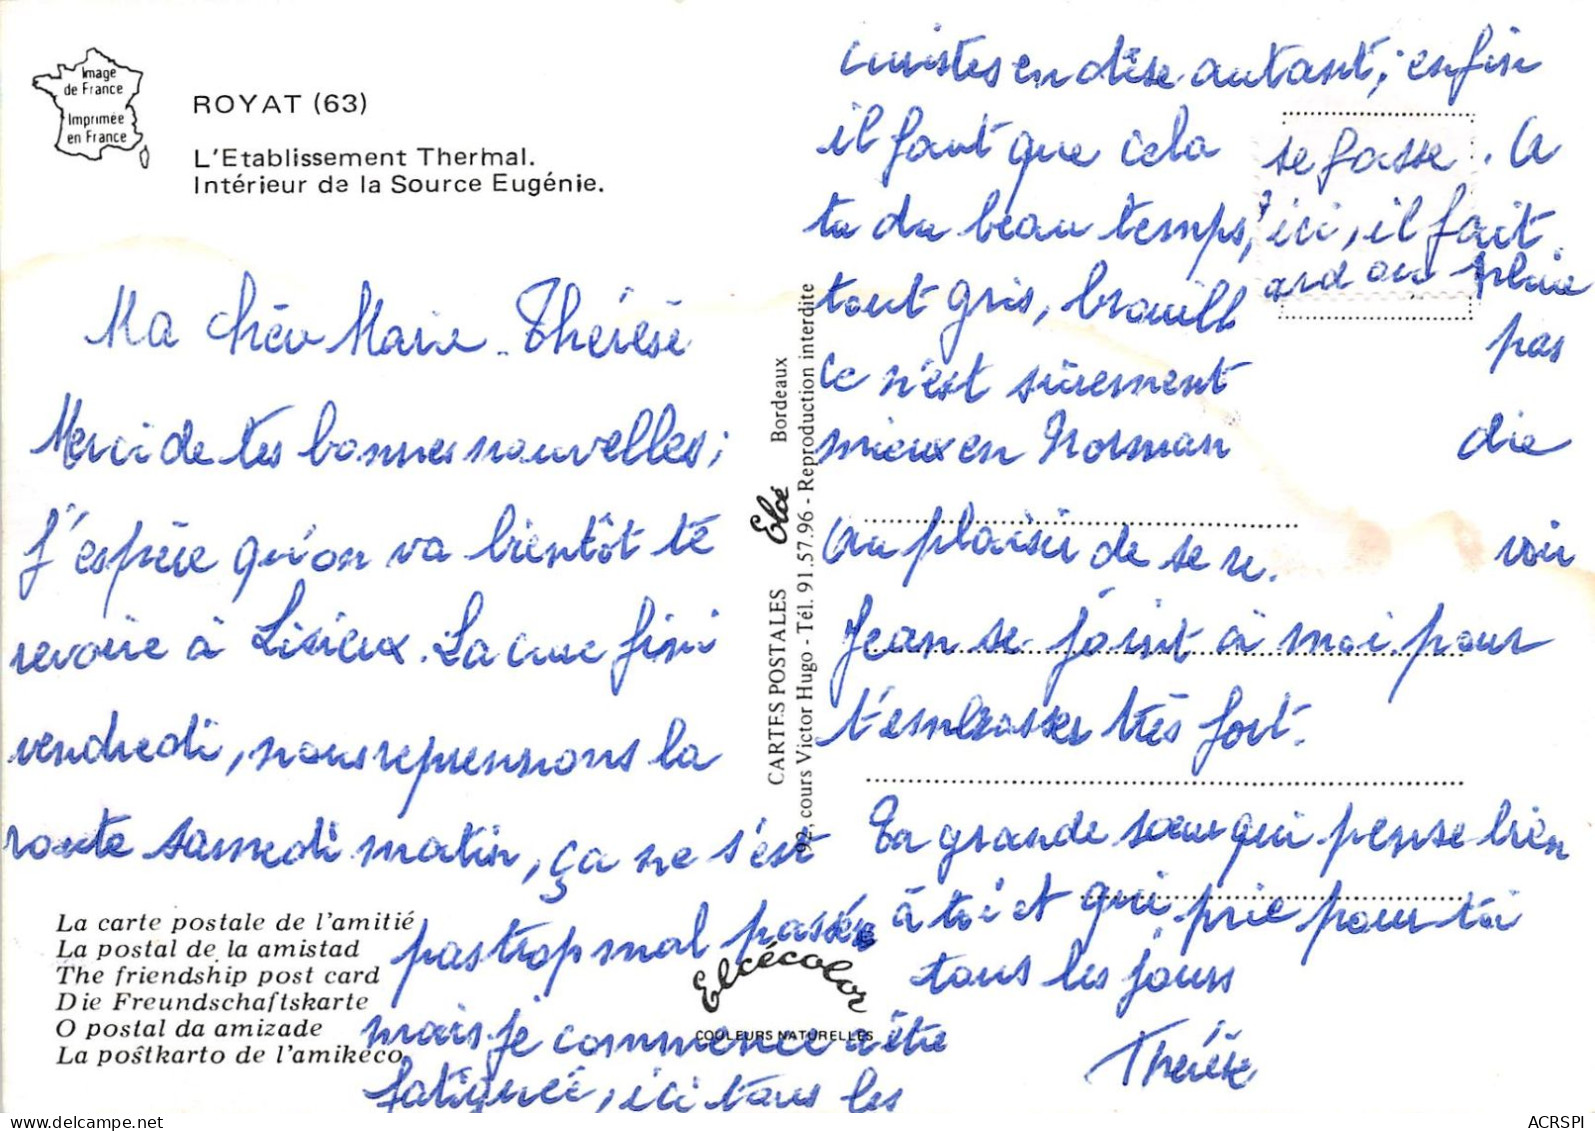 Image
de France
Imprimée
en France
ROYAT (63)
L'Etablissement Thermal.
Intérieur de la Source Eugénie.
Ma chère Marie-Thérèse
Merci de tes bonnes nouvelles ;
j'espère qu'on va bientôt te
revoire à Lisieux. La cure fini
vendredi, nous reprennons la
route samedi matin, ça ne s'est
pas trop mal passée
mais je commence a être
fatiguée, ici tous les
La carte postale de l'amitié
La postal de la amistad
The friendship post card
Die Freundschaftskarte
O postal da amizade
La poŝtkarto de l'amikeco
CARTES POSTALES Elcé Bordeaux
92, cours Victor Hugo - Tél. 91.57.96 - Reproduction interdite
Elcécolor
COULEURS NATURELLES
curistes en dise autant ; enfin
il faut que cela se fasse. A
tu du beau temps, ici, il fait
tout gris, brouillard ou pluie
ce n'est sûrement pas
mieux en Normandie
Au plaisir de se revoir
Jean se joint à moi pour
t'embrasser très fort.
Ta grande sœur qui pense bien
à toi et qui prie pour toi
tous les jours
Thérèse
ACRSPI